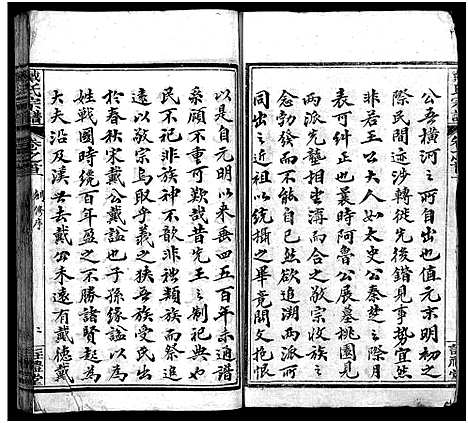 公吾橫河之所自出也值元末明初之
際民間迹涉轉徙先後錯見事勢宜然
非若王如太史公秦楚之際月
表可糾正也曩時阿魯公展墓桃園見
兩派先龔相合之敬宗收族之
念勃發而不能已然欲追溯兩派所
同出之祖以統攝之畢竟闊文抱恨
以是自元明以來垂四五百年未通譜
系顧不重可歎哉昔先王之制祀典也
民不祀非族神不歆非類類族而祭追
遠以敬宗烏取乎義之狹吾族受氏出
於春秋宋戴公戴謚也子孫緣謚以為
姓戰國時纔百年盈之不勝諸賢起為
大夫沿及漢世去戴公未遠有戴德戴
戴氏宗譜
卷之首
創修序
二
戴氏宗譜
卷之首